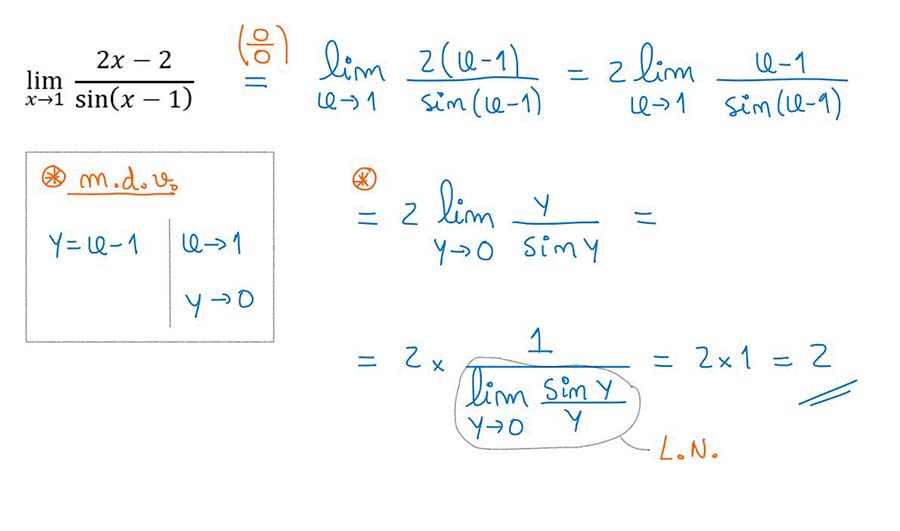 lim x→1 (2x − 2)/sin(x − 1) (0/0) = lim x→1 2(x-1)/sin(x-1) = 2 lim x→1 (x-1)/sin(x-1)
⊛ m.d.v.
y = x-1 | x→1
y→0
⊛
= 2 lim y→0 y/sin y =
= 2 × 1/(lim y→0 (sin y)/y) = 2×1 = 2
L.N.